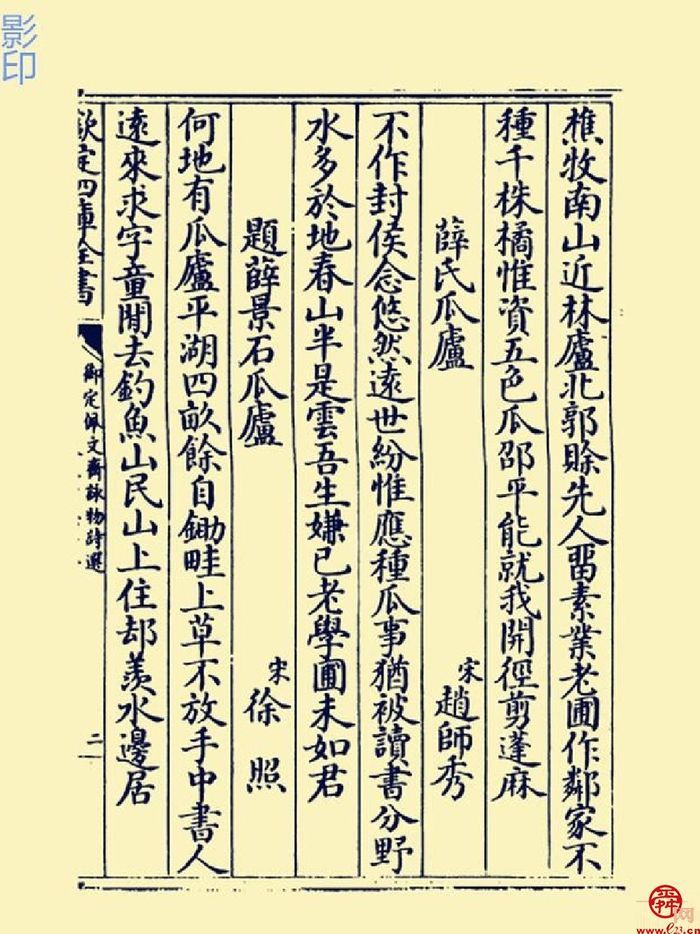 影印
樵牧南山近林廬北郭賒先人畱素業老圃作鄰家不
種千株橘惟資五色瓜邵平能就我開徑剪蓬麻
薛氏瓜廬
宋
趙師秀
不作封侯念悠然遠世紛惟應種瓜事猶被讀書分野
水多於地春山半是雲吾生嫌已老學圃未如君
題薛景石瓜廬
宋
徐照
何地有瓜廬平湖四畝餘自鋤畦上草不放手中書人
遠來求字童閒去釣魚山民山上住却羨水邊居
欽定四庫全書
御定佩文齋詠物詩選
二
舜网
www.e23.cn